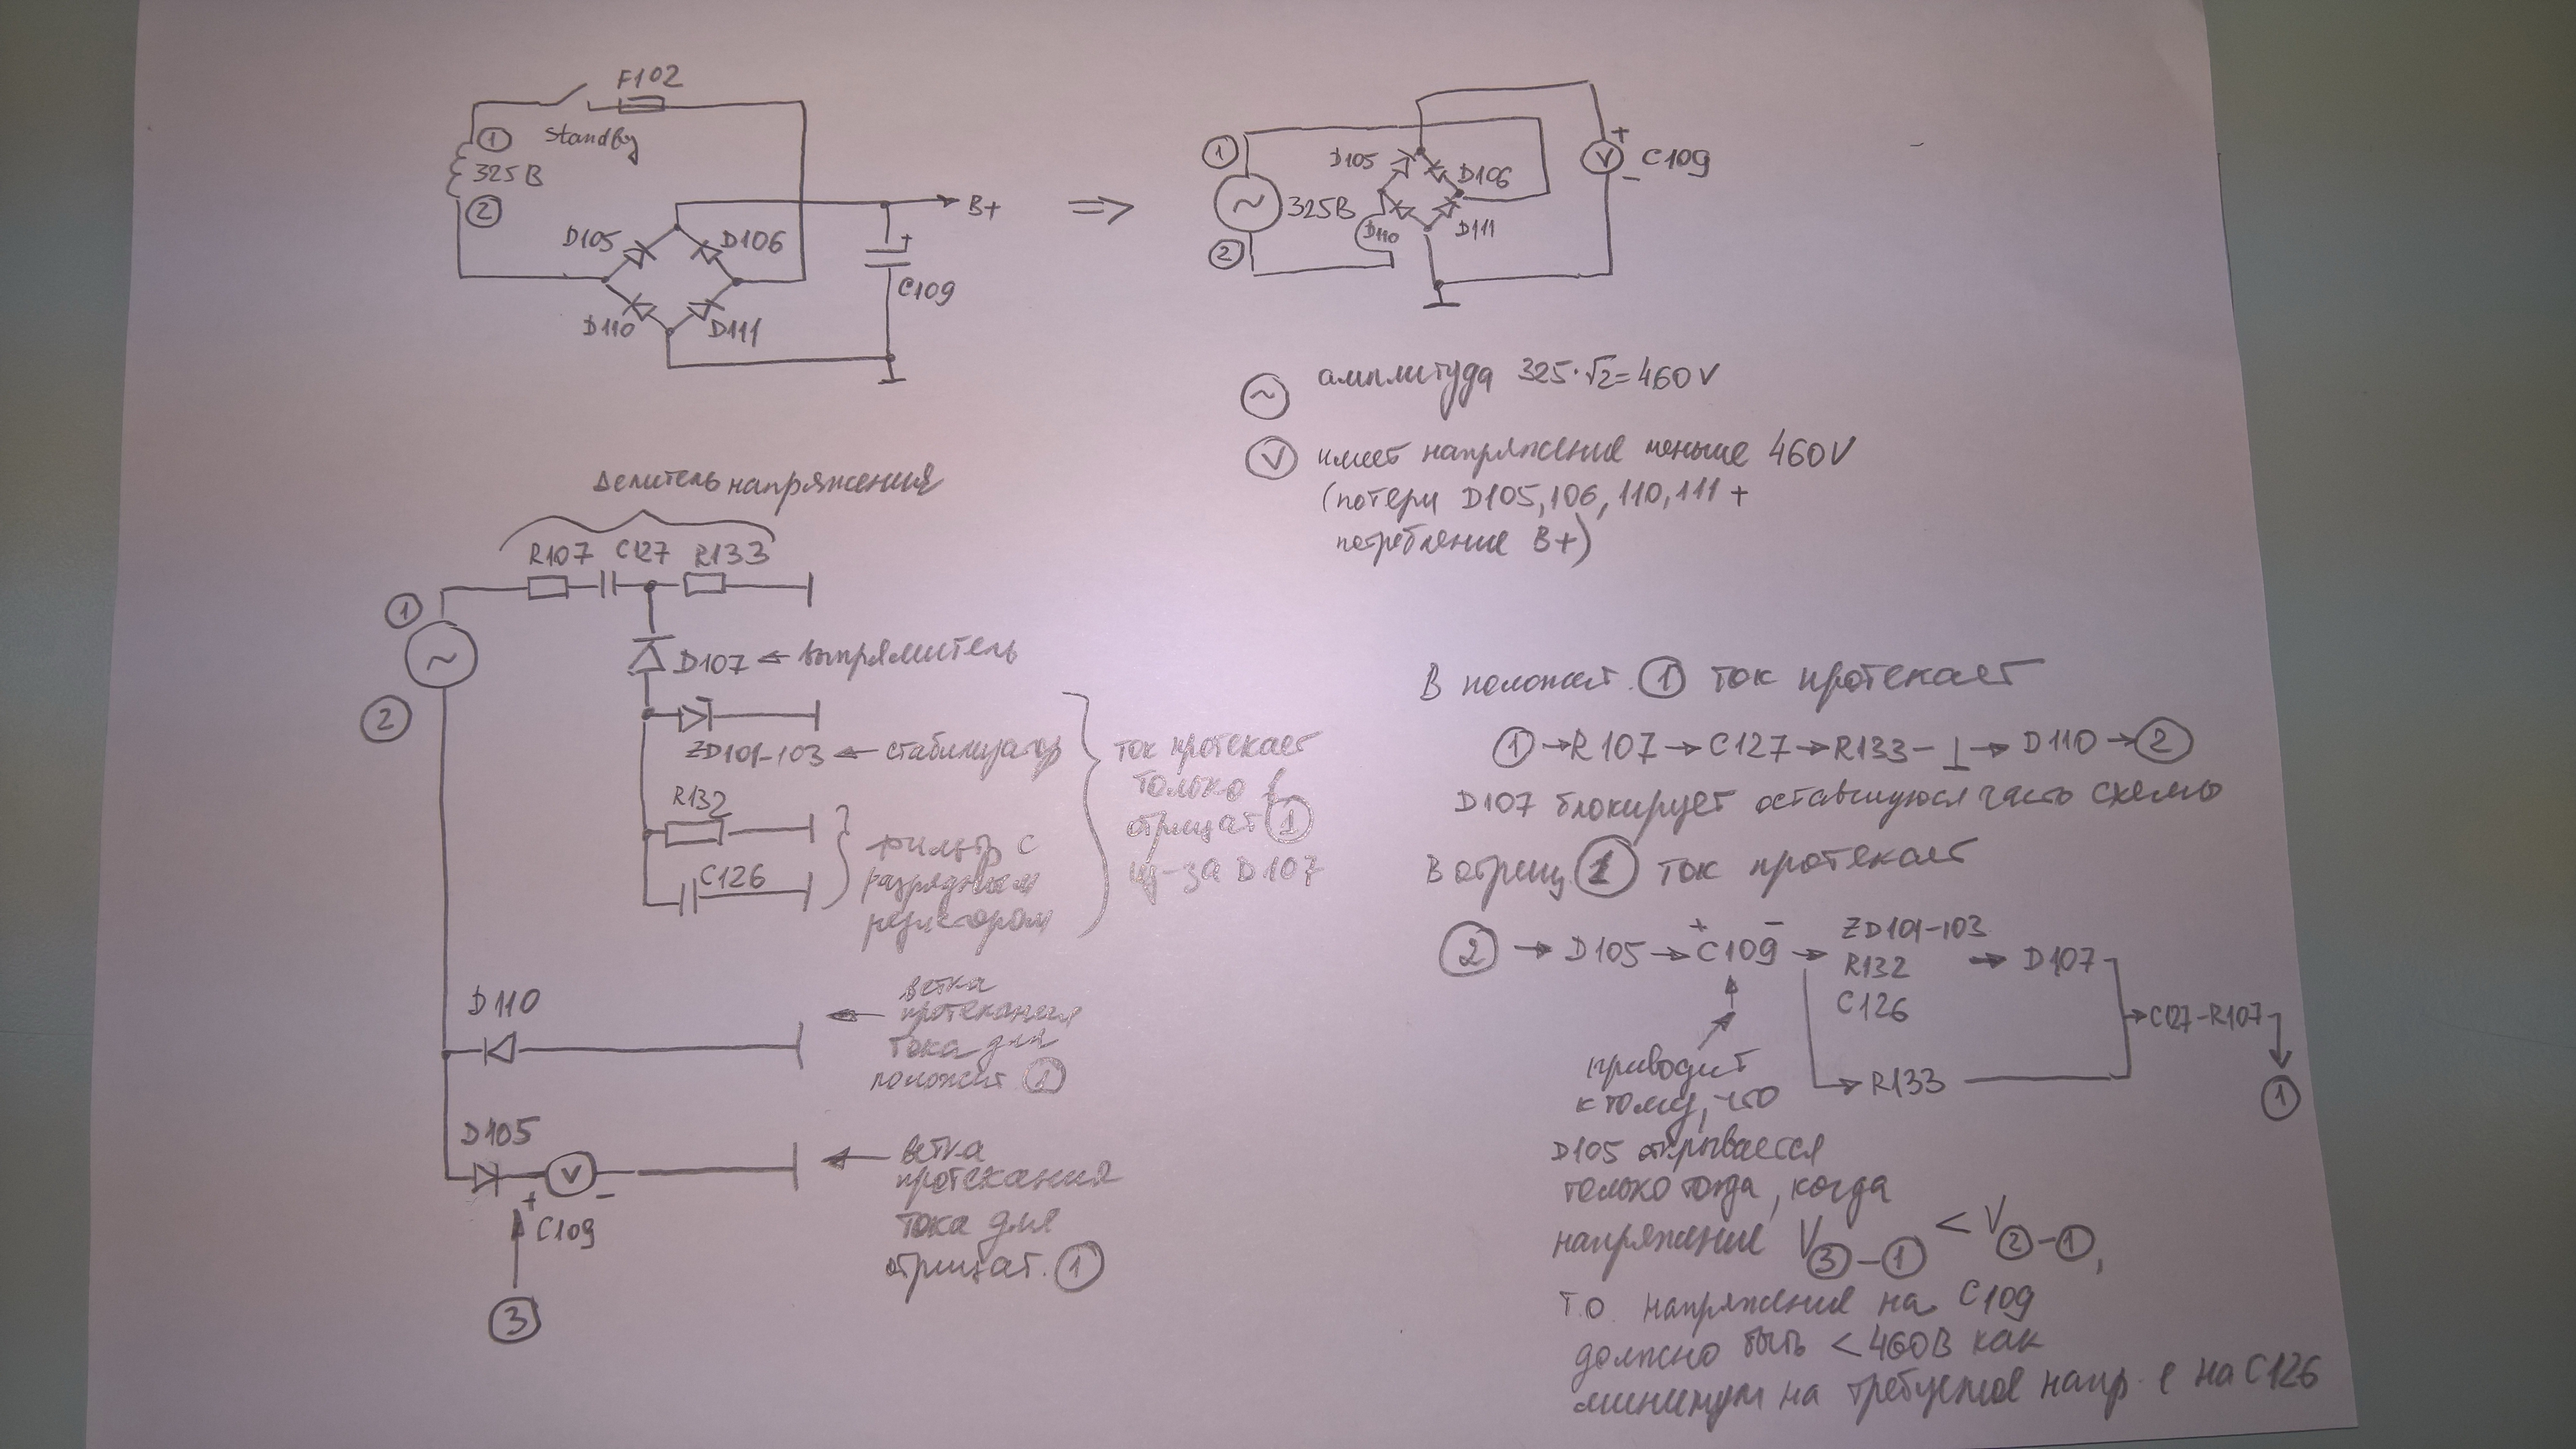 F102
standby
①
325В
②
D105
D106
D110
D111
B+
+
C109
⇒
①
~
325В
②
D105
D106
D110
D111
+
V
−
C109
~ амплитуда 325·√2=460V
V имеет напряжение меньше 460V
(потери D105,106,110,111 +
потребление B+)
делитель напряжения
R107 C127 R133
①
~
②
D107 ← выпрямитель
ZD101-103 ← стабилизатор
R132
C126
фильтр с
разрядным
резистором
ток протекает
только в
отрицат ①
из-за D107
D110
← ветка
протекания
тока для
положит ①
D105
V
+ −
C109
③
← ветка
протекания
тока для
отрицат. ①
В положит. ① ток протекает
① → R107 → C127 → R133 – ⊥ → D110 → ②
D107 блокирует оставшуюся часть схемы
В отриц. ① ток протекает
+ −
② → D105 → C109 → ZD101-103
R132
C126
→ D107
→ R133
→ C127-R107
①
приводит
к тому, что
D105 открывается
только тогда, когда
напряжение V③-① < V②-①,
т.о. напряжение на C109
должно быть < 460В как
минимум на требуемое напр-е на C126